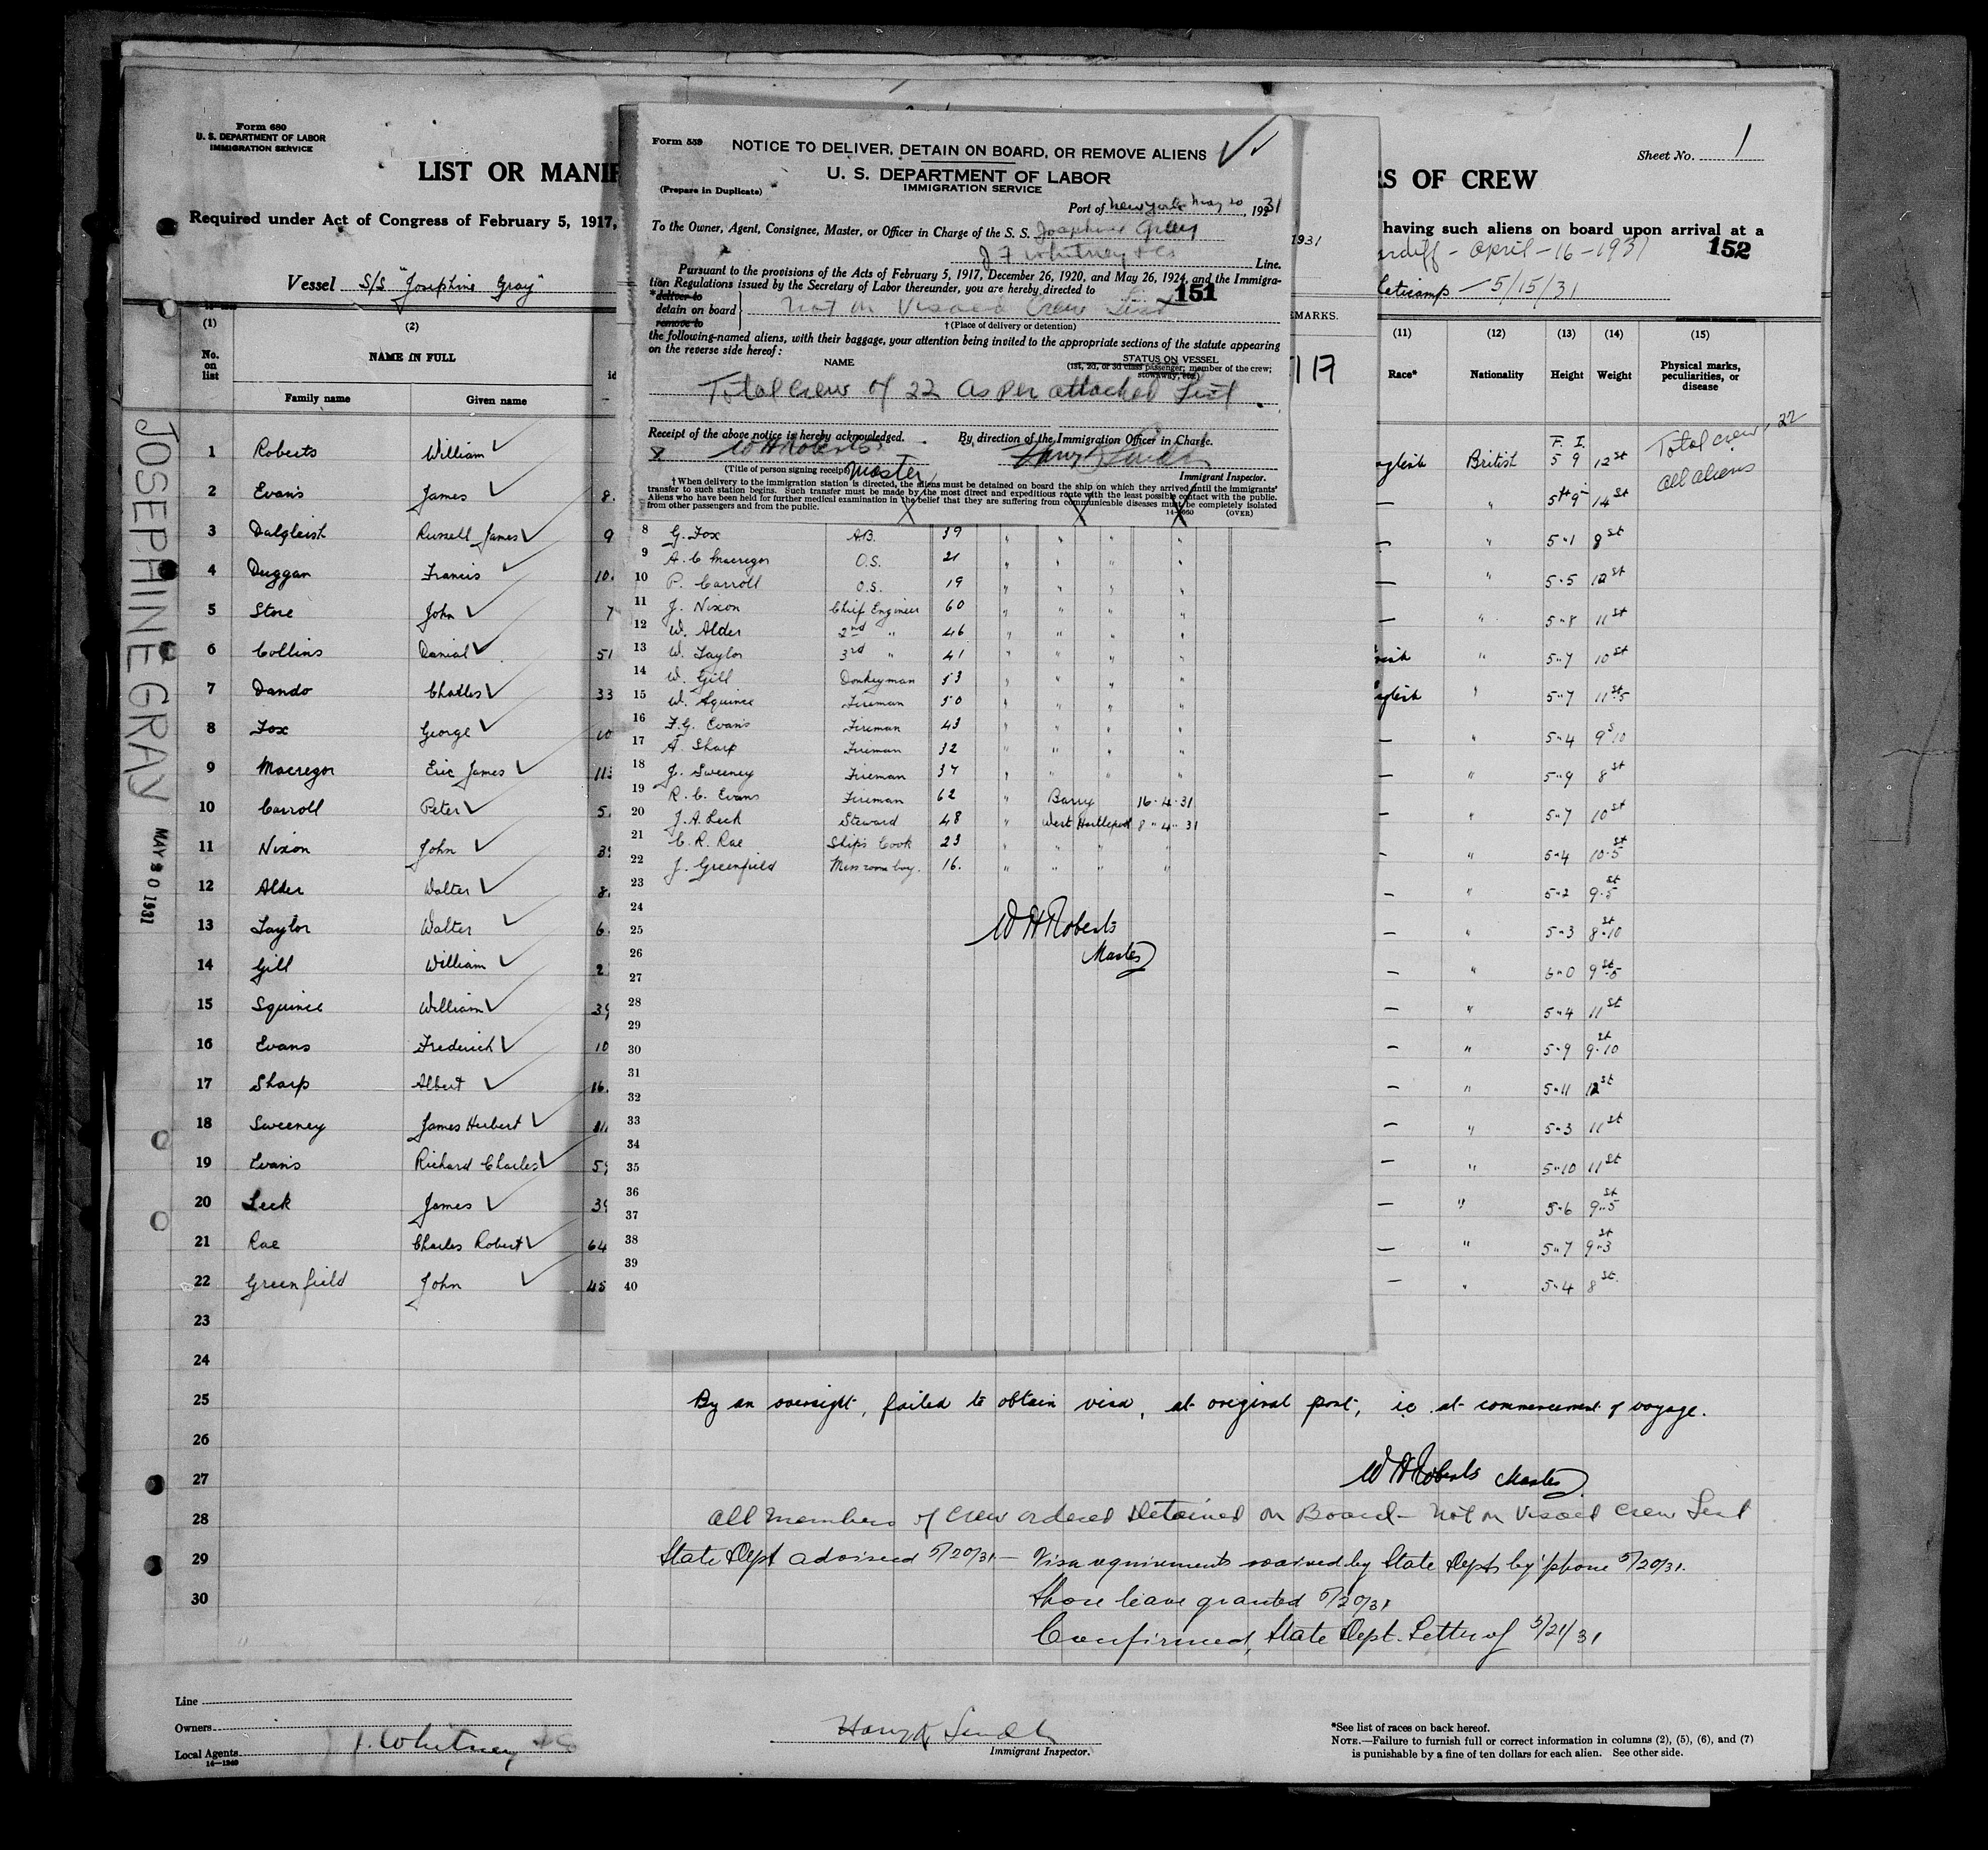 Form 680
U. S. DEPARTMENT OF LABOR
IMMIGRATION SERVICE
LIST OR MANIF
Required under Act of Congress of February 5, 1917,
Vessel S/S "Josephine Gray"
(1) (2)
No. on list
NAME IN FULL
Family name Given name
1 Roberts William
2 Evans James 8.
3 Dalgleish Russell James 9
4 Duggan Francis 10.
5 Store John 7
6 Collins Danial 51
7 Dando Charles 33
8 Fox George 10
9 Macregor Eric James 113
10 Carroll Peter 5.
11 Nixon John 39
12 Alder Walter 8.
13 Taylor Walter 6.
14 Gill William 2
15 Squince William 39
16 Evans Frederick 10
17 Sharp Albert 16.
18 Sweeney James Herbert
19 Evans Richard Charles 59
20 Leck James 39
21 Rae Charles Robert 64
22 Greenfield John 45
23
24
25
26
27
28
29
30
JOSEPHINE GRAY
MAY 20 1931
Form 559
NOTICE TO DELIVER, DETAIN ON BOARD, OR REMOVE ALIENS
U. S. DEPARTMENT OF LABOR
IMMIGRATION SERVICE
(Prepare in Duplicate)
Port of New York May 20, 1931
To the Owner, Agent, Consignee, Master, or Officer in Charge of the S. S. Josephine Gray
J F Whitney & Co Line.
Pursuant to the provisions of the Acts of February 5, 1917, December 26, 1920, and May 26, 1924, and the Immigra-
tion Regulations issued by the Secretary of Labor thereunder, you are hereby directed to
151
*deliver to
detain on board
remove to
Not on Visaed Crew List
† (Place of delivery or detention)
the following-named aliens, with their baggage, your attention being invited to the appropriate sections of the statute appearing
on the reverse side hereof:
NAME
STATUS ON VESSEL
(1st, 2d, or 3d class passenger; member of the crew;
stowaway, etc.)
Total crew of 22 as per attached List.
Receipt of the above notice is hereby acknowledged. By direction of the Immigration Officer in Charge.
x W H Roberts
(Title of person signing receipt) Master
Immigrant Inspector.
† When delivery to the immigration station is directed, the aliens must be detained on board the ship on which they arrived until the immigrants'
transfer to such station begins. Such transfer must be made by the most direct and expeditious route with the least possible contact with the public.
Aliens who have been held for further medical examination in the belief that they are suffering from communicable diseases must be completely isolated
from other passengers and from the public.
(OVER)
1931
EMARKS.
117
8 G. Fox A.B. 39 " " " "
9 A. C Macregor O.S. 21 " " " "
10 P. Carroll O.S. 19 " " " "
11 J. Nixon Chief Engineer 60 " " " "
12 W. Alder 2nd " 46 " " " "
13 W. Taylor 3rd " 41 " " " "
14 W. Gill Donkeyman 53 " " " "
15 W. Squince Fireman 50 " " " "
16 F.G. Evans Fireman 43 " " " "
17 A. Sharp Fireman 32 " " " "
18 J. Sweeney Fireman 37 " " " "
19 R. C. Evans Fireman 62 " Barry 16.4.31
20 J. A. Leck Steward 48 " West Hartlepool 8.4.31
21 C. R. Rae Ships Cook 23 " " " "
22 J. Greenfield Mess room boy. 16. " " " "
23
24
25
26
27
28
29
30
31
32
33
34
35
36
37
38
39
40
W H Roberts
Master
Sheet No. 1
S OF CREW
having such aliens on board upon arrival at a
152
rdiff - April - 16 - 1931
Cheticamp - 5/15/31
(11) (12) (13) (14) (15)
Race* Nationality Height Weight Physical marks, peculiarities, or disease
F. I.
nglish British 5 9 12 st
Total crew, 22
all aliens
— " 5 9 14 st
— " 5-1 8 st
— " 5-5 12 st
— " 5-8 11 st
" 5-7 10 st
nglish " 5-7 11 st 5
— " 5-4 9 s 10
— " 5-9 8 st
— " 5-7 10 st
— " 5-4 10 st 5
— " 5-2 9 st 5
— " 5-3 8 st 10
— " 6-0 9 st 5
— " 5-4 11 st
— " 5-9 9 st 10
— " 5-11 12 st
— " 5-3 11 st
— " 5-10 11 st
— " 5-6 9 st 5
— " 5-7 9 st 3
— " 5-4 8 st.
By an oversight, failed to obtain visa, at original port, ie at commencement of voyage.
W H Roberts Master
All members of crew ordered detained on Board - Not on Visaed Crew List
State Dept advised 5/20/31 — Visa requirements waived by State Dept by 'phone 5/20/31.
Shore leave granted 5/20/31
Confirmed, State Dept. Letter of 5/21/31
Line
Owners
Local Agents J. Whitney & Co
14—1240
Immigrant Inspector.
*See list of races on back hereof.
NOTE.—Failure to furnish full or correct information in columns (2), (5), (6), and (7)
is punishable by a fine of ten dollars for each alien. See other side.